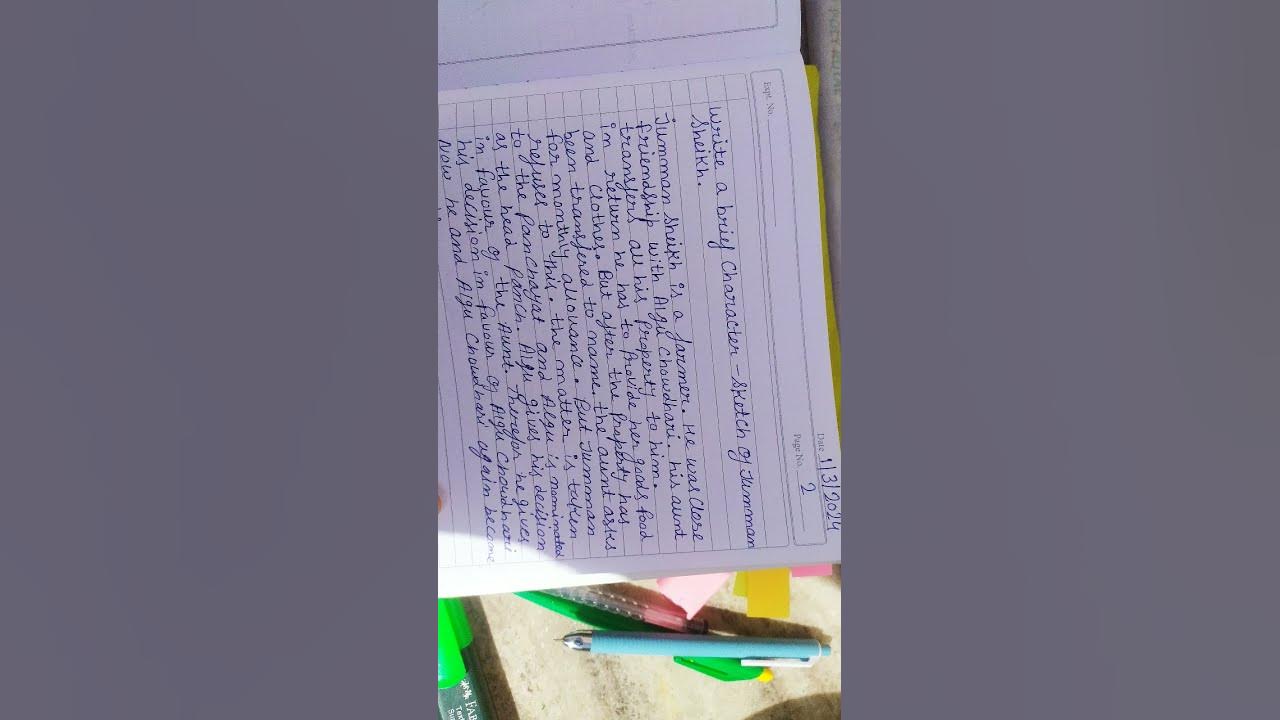 Expt. No.
Date 1/3/2024
Page No. 2
Write a brief Character-Sketch of Jumman
Sheikh.
Jumman Sheikh is a farmer. He was close
friendship with Algu Chowdhari. his aunt
transfers all his property to him.
in return he has to Provide her goods food
and clothes. But after the Property has
been transfered to name. the aunt asks
for monthly allowance. But Jumman
refuses to this. the matter is taken
to the Panchayat and Algu is nominated
as the head Panch. Algu gives his decision
in favour of the Aunt. he gives
his decision in favour of Algu Chowdhari
Now he and Algu Chowdhari again become
FAB